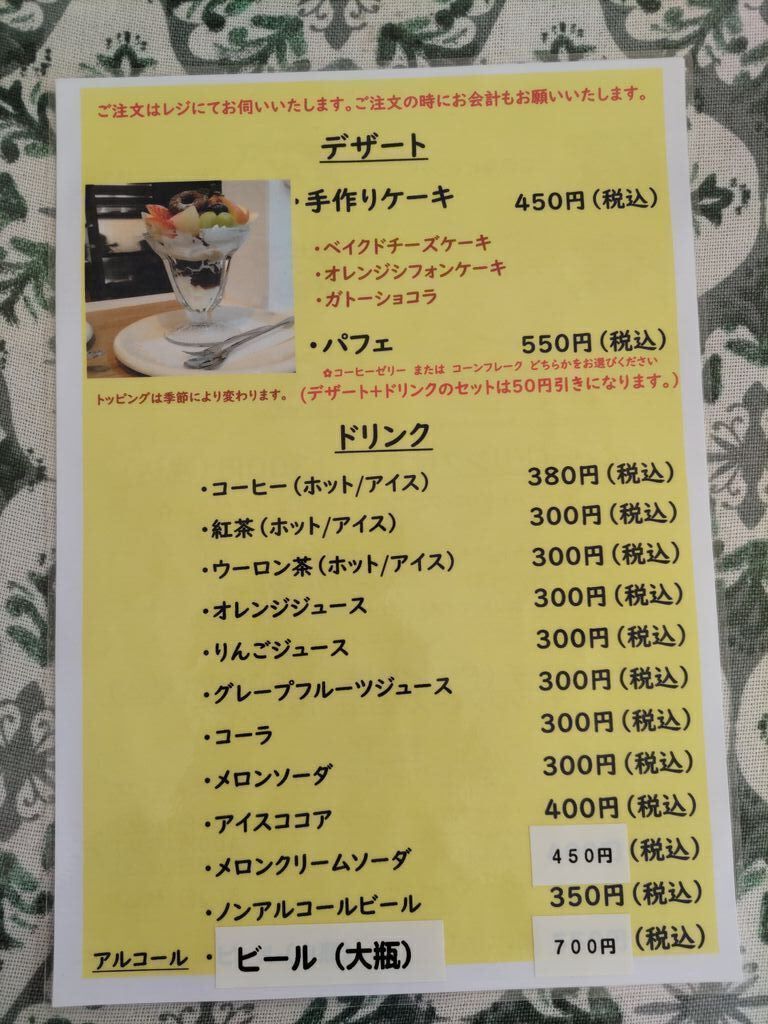 ご注文はレジにてお伺いいたします。ご注文の時にお会計もお願いいたします。
デザート
・手作りケーキ 450円(税込)
・ベイクドチーズケーキ
・オレンジシフォンケーキ
・ガトーショコラ
・パフェ 550円(税込)
✿コーヒーゼリー または コーンフレーク どちらかをお選びください
トッピングは季節により変わります。 (デザート+ドリンクのセットは50円引きになります。)
ドリンク
・コーヒー(ホット/アイス) 380円(税込)
・紅茶(ホット/アイス) 300円(税込)
・ウーロン茶(ホット/アイス) 300円(税込)
・オレンジジュース 300円(税込)
・りんごジュース 300円(税込)
・グレープフルーツジュース 300円(税込)
・コーラ 300円(税込)
・メロンソーダ 300円(税込)
・アイスココア 400円(税込)
・メロンクリームソーダ 450円(税込)
・ノンアルコールビール 350円(税込)
アルコール ・ビール(大瓶) 700円(税込)